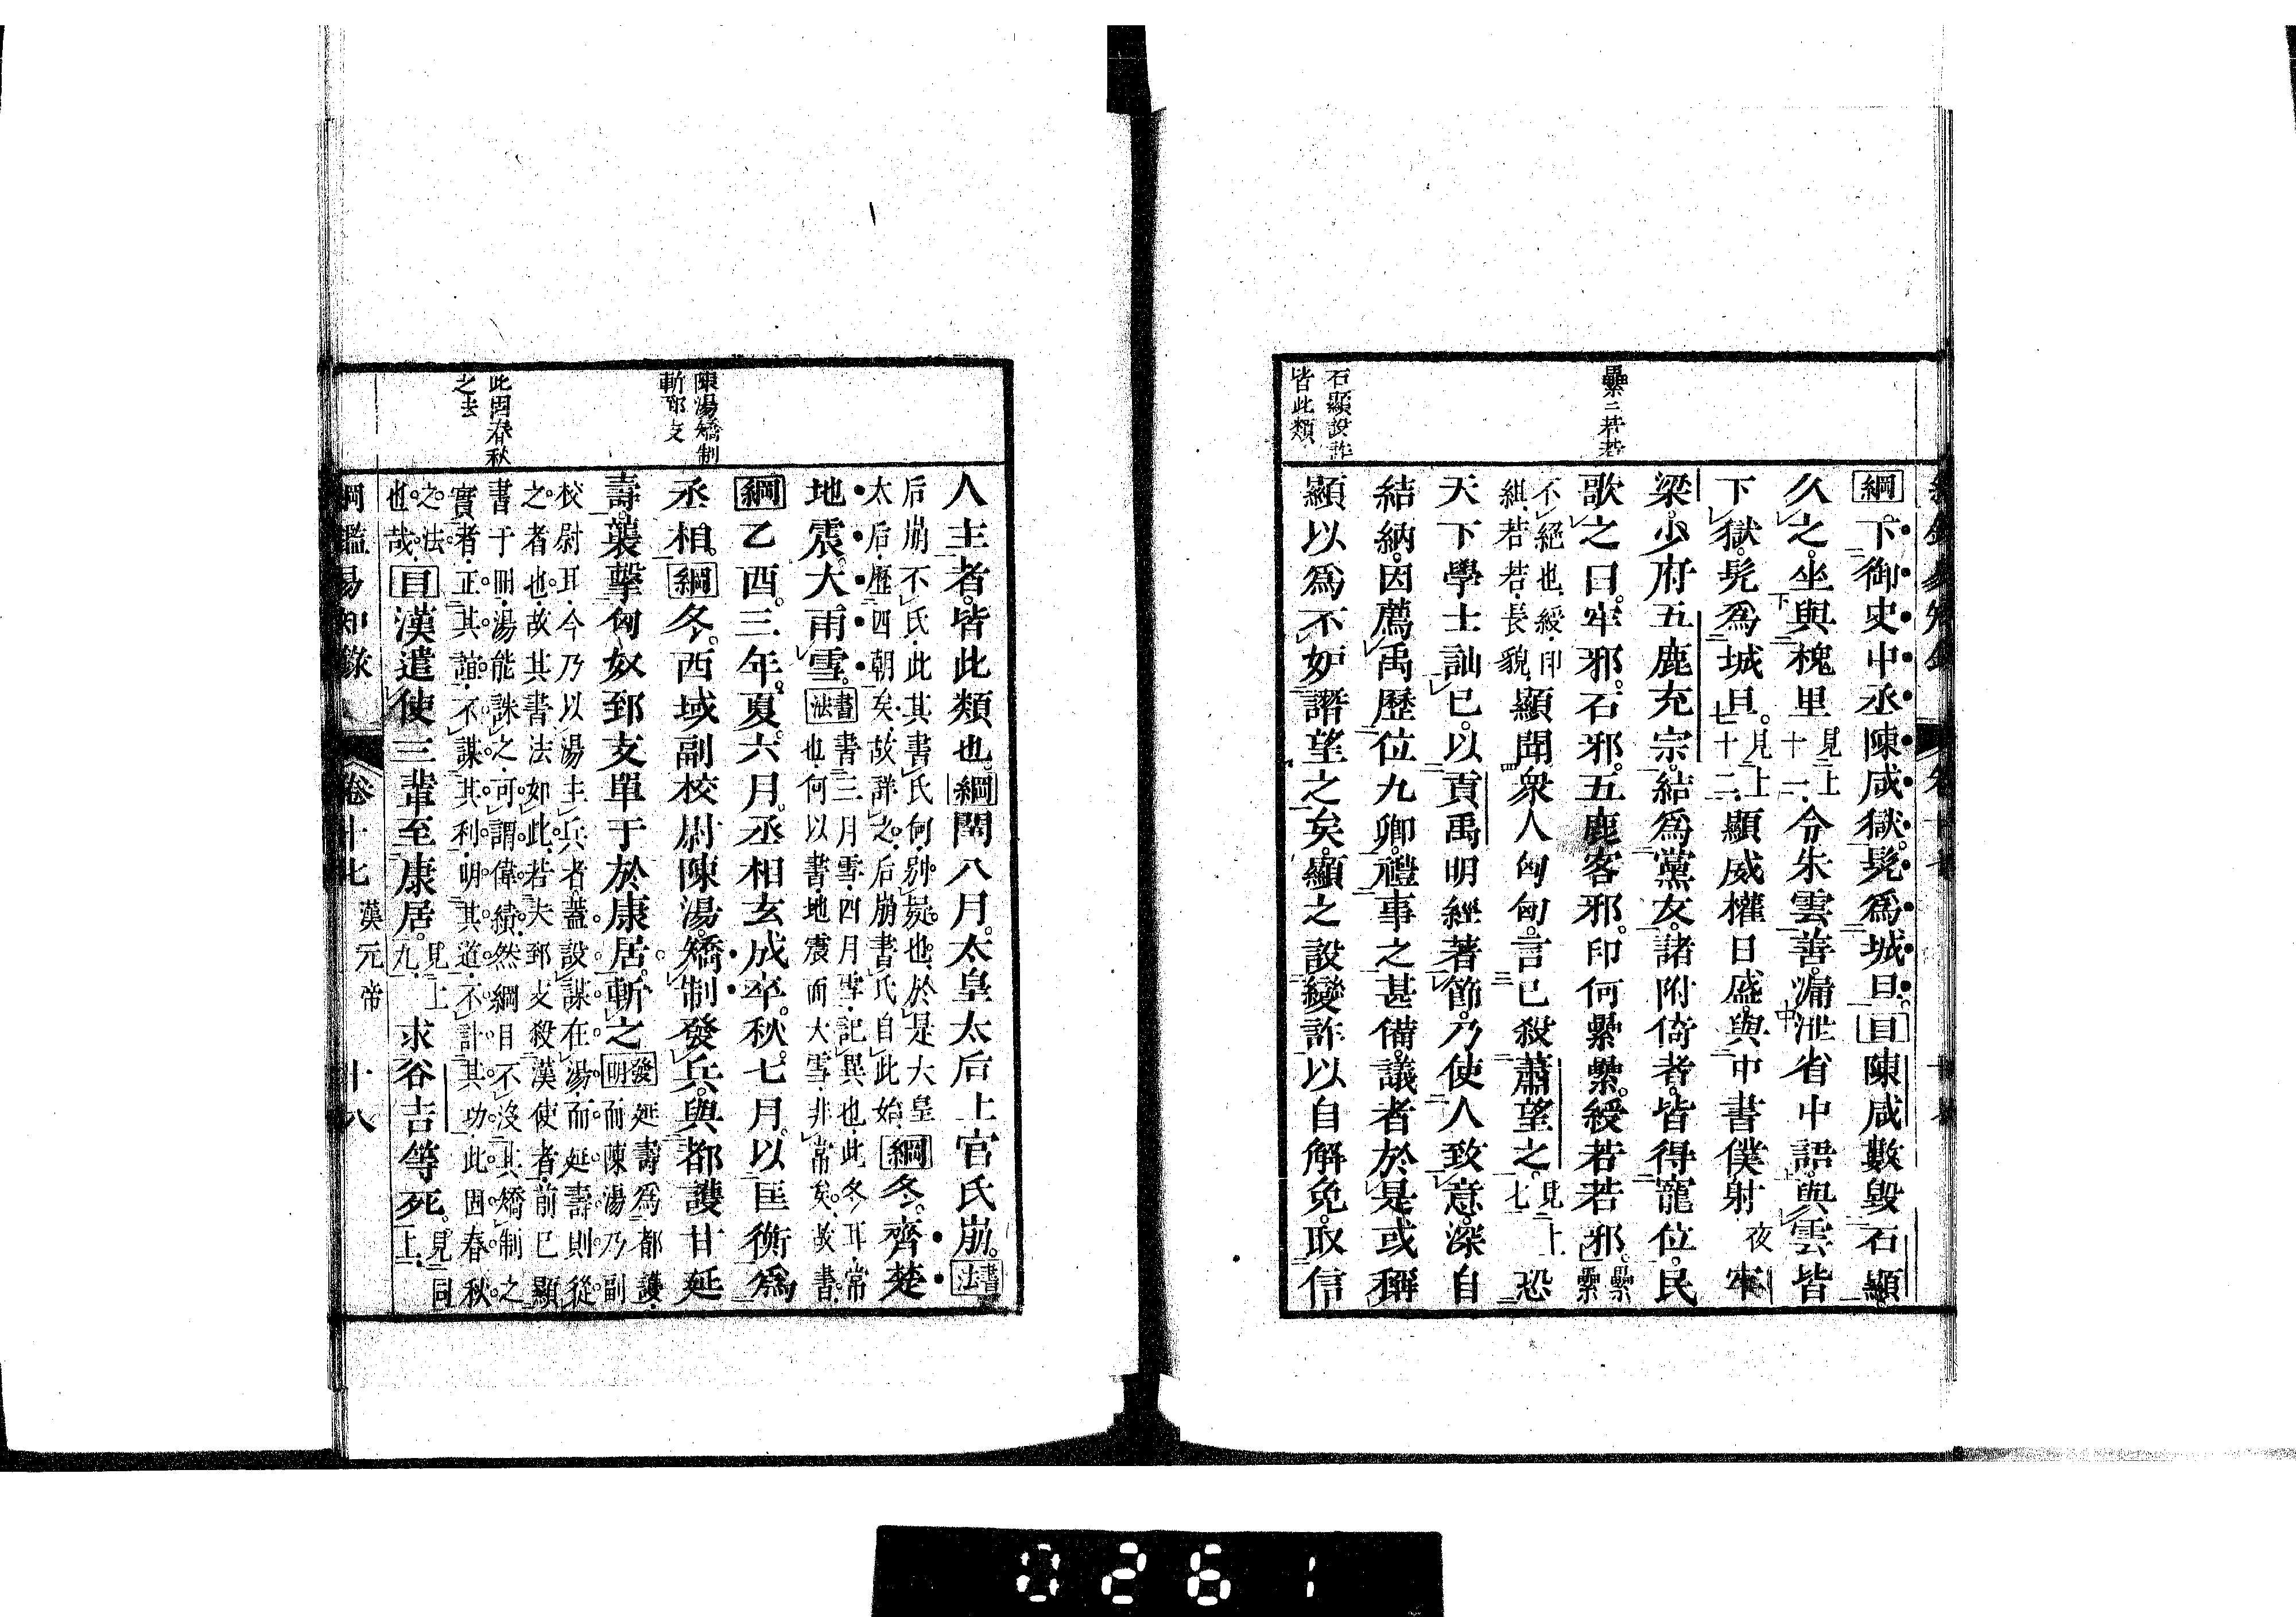 纍纍若若
石顯設詐
皆此類
綱下御史中丞陳咸獄髡爲城旦目陳咸數毀石顯
久之坐與槐里見上十一令朱雲善漏泄省中語與雲皆
下獄髡爲城旦見上七十二顯威權日盛與中書僕射夜牢
梁少府五鹿充宗結爲黨友諸附倚者皆得寵位民
歌之曰牢邪石邪五鹿客邪印何纍纍綬若若邪纍纍
不絕也綬印組若若長貌顯聞衆人匈匈言已殺蕭望之見上七恐
天下學士訕已以貢禹明經著節乃使人致意深自
結納因薦禹歷位九卿禮事之甚備議者於是或稱
顯以爲不妒譖望之矣顯之設變詐以自解免取信
陳湯矯制
斬郅支
此固春秋
之法
人主者皆此類也綱閏八月太皇太后上官氏崩書法
后崩不氏此其書氏何別疑也於是大皇
太后歷四朝矣故詳之后崩書氏自此始綱冬齊楚
地震大雨雪書法書三月雪四月雪記異也此冬耳常
也何以書地震而大雪非常矣故書
綱乙酉三年夏六月丞相玄成卒秋七月以匡衡爲
丞相綱冬西域副校尉陳湯矯制發兵與都護甘延
壽襲擊匈奴郅支單于於康居斬之發明延壽爲都護
而陳湯乃副
校尉耳今乃以湯主兵者蓋設謀在湯而延壽則從
之者也故其書法如此若夫郅支殺漢使者前已顯
書于冊湯能誅之可謂偉績然綱目不沒其矯制之
實者正其誼不謀其利明其道不計其功此固春秋
之法也哉目漢遣使三輩至康居見上九求谷吉等死見同上
綱鑑易知錄 卷十七 漢元帝 十八